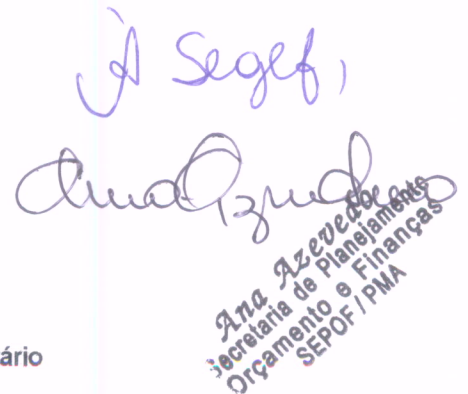 À Segef,
Ana Azevedo
Ana Azevedo
Secretaria de Planejamento
Orçamento e Finanças
SEPOF / PMA
ário